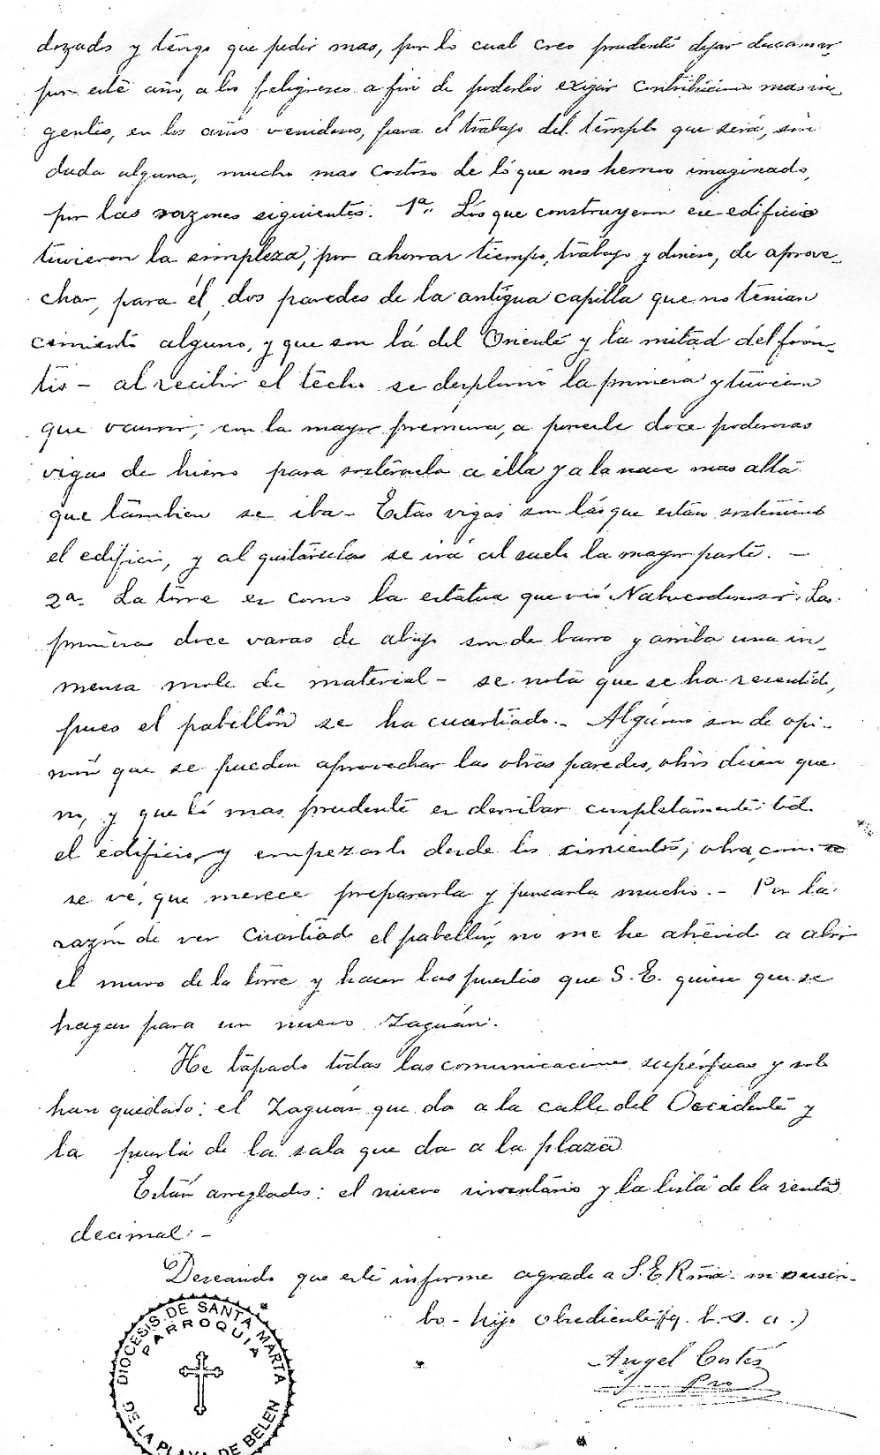 dozado y tengo que pedir mas, por lo cual creo prudente dejar descansar,
por este año, a los feligreses a fin de poderles exigir contribuciones mas in-
gentes, en los años venideros, para el trabajo del templo que será, sin
duda alguna, mucho mas costoso de lo que nos hemos imaginado,
por las razones siguientes: 1ª Los que construyeron ese edificio
tuvieron la simpleza, por ahorrar tiempo, trabajo y dinero, de aprove-
char, para él, dos paredes de la antigua capilla que no tenian
cimiento alguno, y que son la del Oriente y la mitad del fron-
tis - al recibir el techo se desplomó la primera y tuvieron
que ocurrir, con la mayor premura, a ponerle doce poderosas
vigas de hierro para sostenerla a ella y a la nave mas alta
que tambien se iba - Estas vigas son las que estan sosteniendo
el edificio, y al quitárselas se irá al suelo la mayor parte. -
2ª La torre es como la estatua que vió Nabucodonosor. Las
primeras doce varas de abajo son de barro y arriba una in-
mensa mole de material - se nota que se ha resentido,
pues el pabellón se ha cuartiado. - Algunos son de opi-
nión que se pueden aprovechar las otras paredes, otros dicen que
no, y que lo mas prudente es derribar completamente todo
el edificio y empezarlo desde los cimientos; obra, como
se vé, que merece prepararla y pensarla mucho. - Por la
razón de ver cuartiado el pabellón, no me he atrevido a abrir
el muro de la torre y hacer las puertas que S.E. quiere que se
hagan para un nuevo zaguán.
He tapado todas las comunicaciones supérfluas y solo
han quedado: el zaguán que da a la calle del Occidente y
la puerta de la sala que da a la plaza
Están arreglados: el nuevo inventario y la lista de la renta
decimal. -
Deseando que este informe agrade a S.E. Rma. me suscri-
bo - hijo obediente (q. b. s. a.)
Angel Cortés
Pro
DIOCESIS DE SANTA MARTA
PARROQUIA
DE LA PLAYA DE BELEN